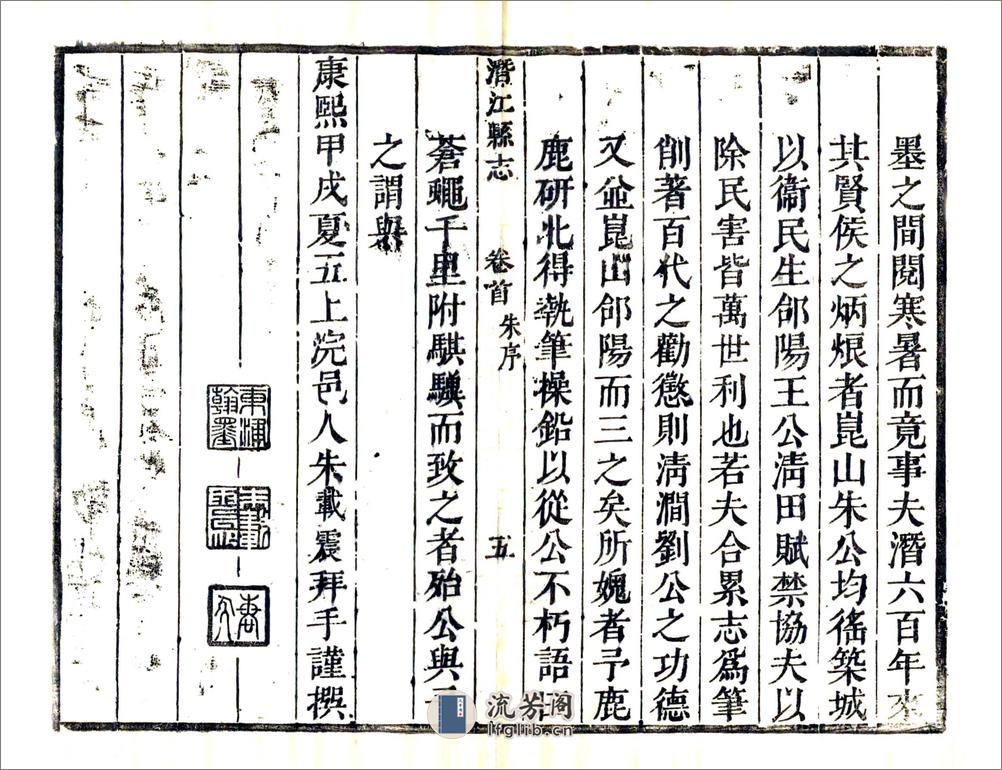 墨之間閱寒暑而竟事夫潛六百年來
其賢侯之炳烺者崑山朱公均徭築城
以衞民生郃陽王公淸田賦禁協夫以
除民害皆萬世利也若夫合累志爲筆
削著百代之勸懲則淸澗劉公之功德
又竝崑山郃陽而三之矣所媿者予鹿
鹿研北得執筆操鉛以從公不朽語
潛江縣志 卷首 朱序 五
蒼蠅千里附騏驥而致之者殆公與
之謂與
康熙甲戌夏五上浣邑人朱載震拜手謹撰
東浦翰墨
流芳阁
lfglib.cn